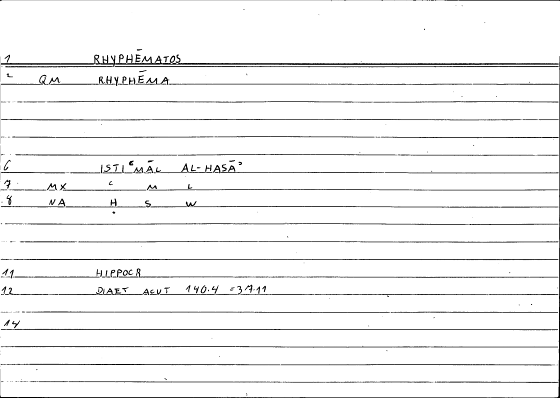 1 RHYPHĒMATOS
2 QM RHYPHĒMA
6 ISTIʿMĀL AL-ḤASĀʾ
7 MX ʿ M L
8 NA Ḥ S W
11 HIPPOCR
12 DIAET ACUT 140.4 =37.11
14